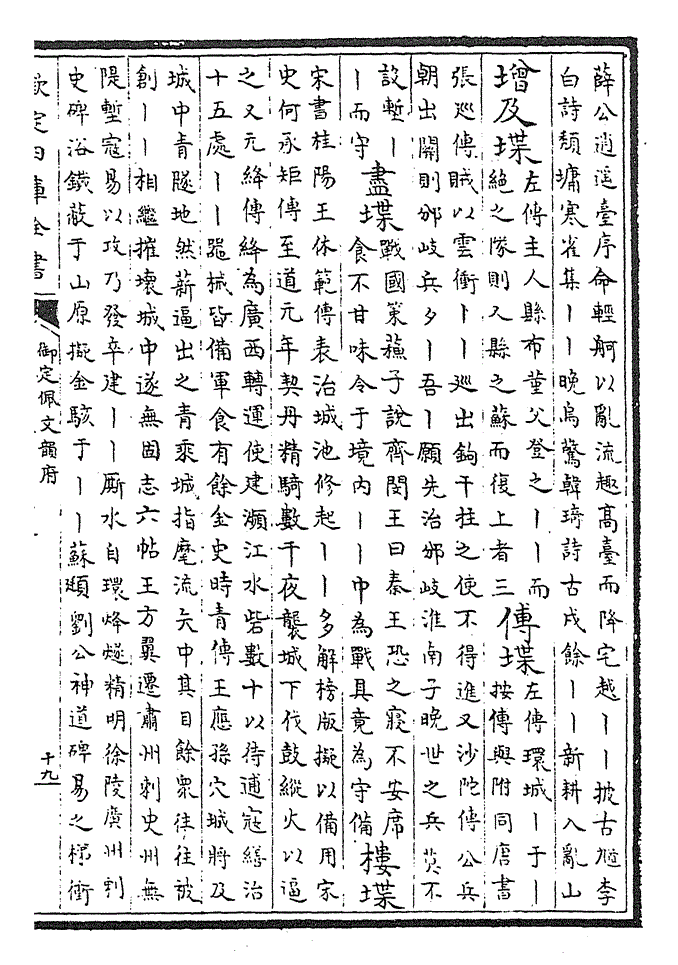 薛公逍遥臺序命輕舸以亂流趣髙臺而降宅越丨丨披古李
白詩頽墉寒雀集丨丨晚烏驚韓琦詩古戍餘丨丨新耕入亂山
增及堞
左傳主人縣布堇父登之丨丨而
絶之隊則又縣之蘇而復上者三
傅堞
左傳環城丨于丨
按傅與附同唐書
張廵傳賊以雲衝丨丨廵出鉤干拄之使不得進又沙陀傳公兵
朝出闗則邠岐兵夕丨吾丨願先治邠岐淮南子晚世之兵莫不
設塹丨
丨而守
盡堞
戰國策蘓子說齊閔王曰秦王恐之寢不安席
食不甘味令于境内丨丨中為戰具竟為守備
樓堞
宋書桂陽王休範傳表治城池修起丨丨多解榜版擬以備用宋
史何承矩傳至道元年契丹精騎數千夜襲城下伐鼓縱火以逼
之又元絳傳絳為廣西轉運使建瀕江水砦數十以待逋寇繕治
十五處丨丨器械皆備軍食有餘金史時青傳王應孫穴城將及
城中青隧地然薪逼出之青乘城指麾流矢中其目餘衆往往被
創丨丨相繼摧壊城中遂無固志六帖王方翼遷肅州刺史州無
隄塹寇易以攻乃發卒建丨丨厮水自環烽燧精明徐陵廣州刺
史碑浴鐵蔽于山原擬金駭于丨丨蘇頲劉公神道碑易之梯衝
欽定四庫全書
御定佩文韻府
十九